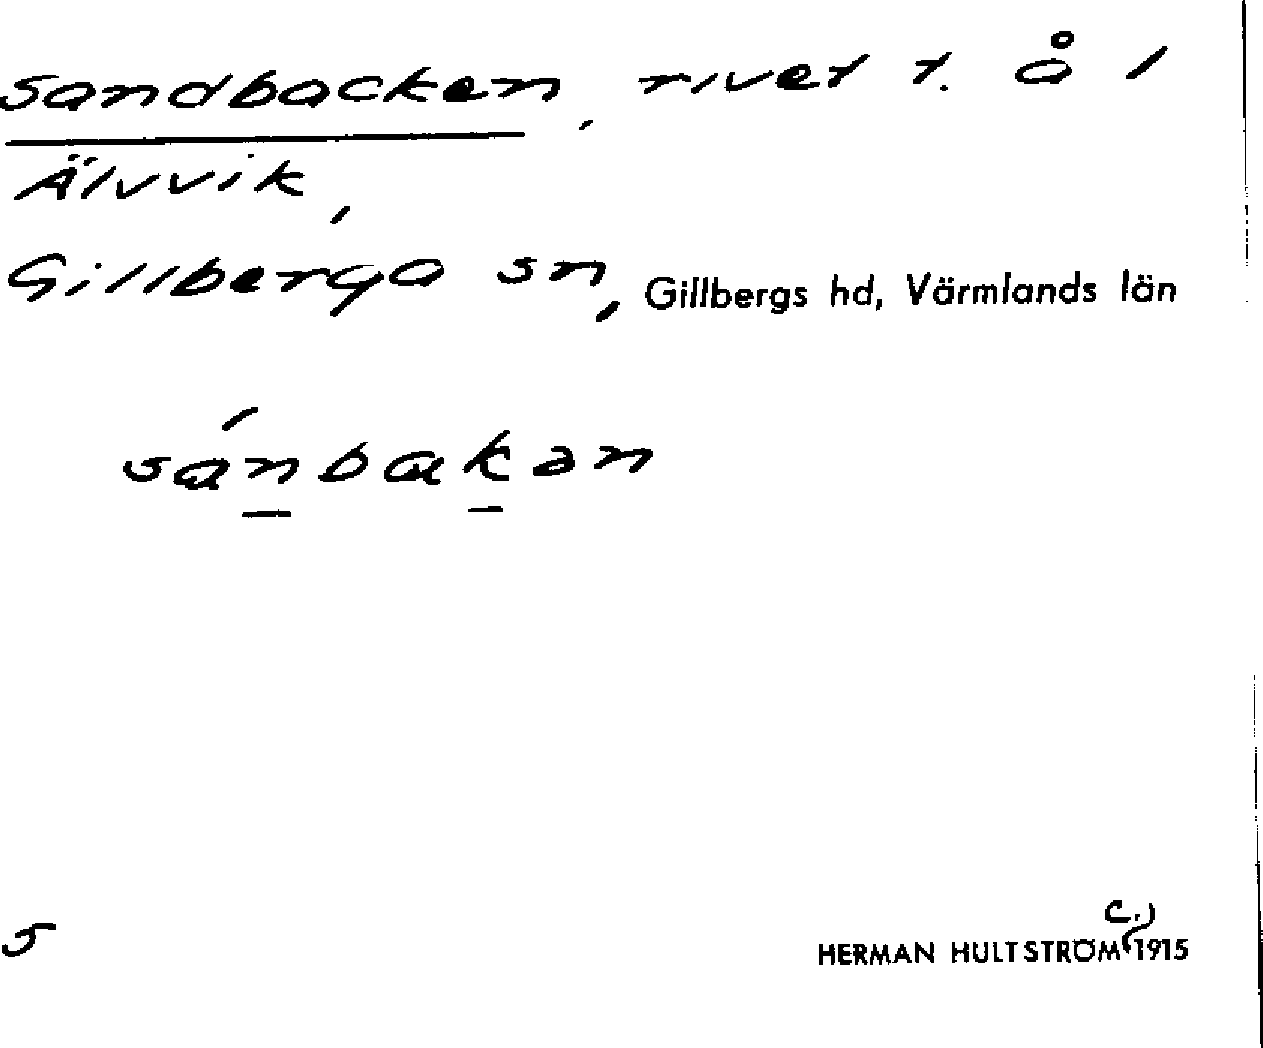 Sandbacken, rivet t. å i
Älvvik,
Gillberga sn, Gillbergs hd, Värmlands län
sánbakan
5
c.)
HERMAN HULTSTRÖM 1915